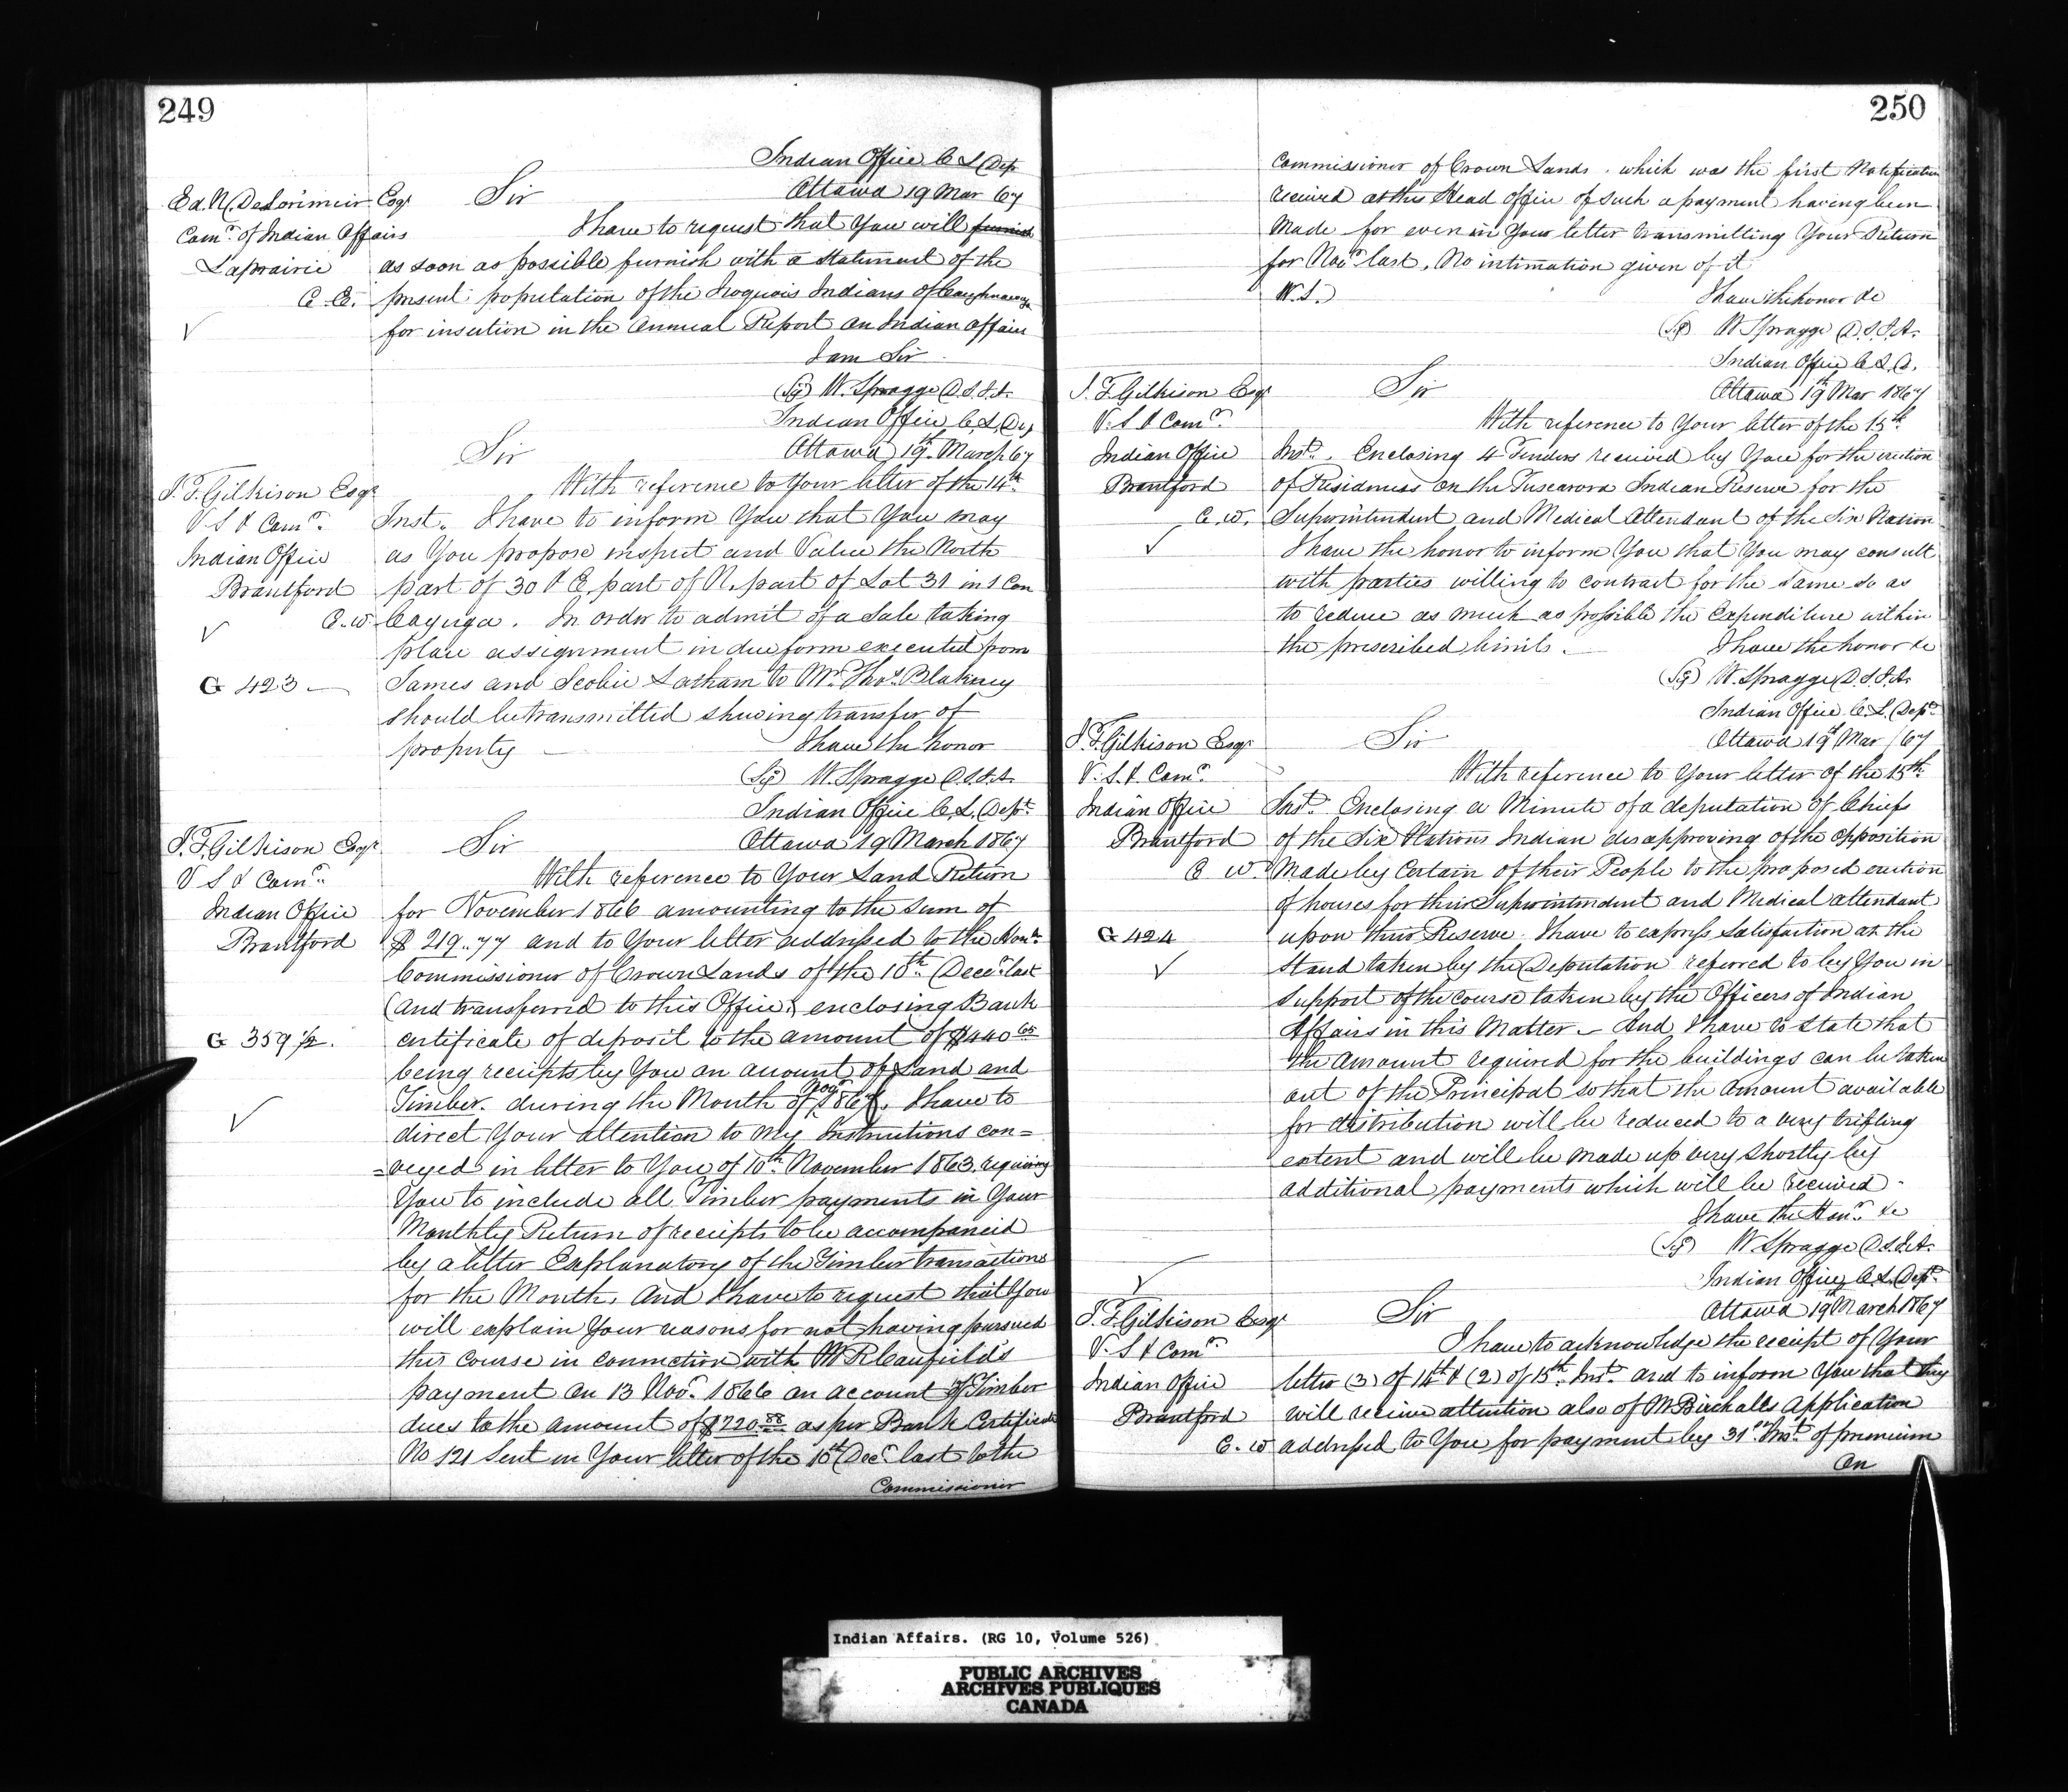 249
Indian Office C L Dep
Ottawa 19 Mar 67
Ed. N. DeLorimier Esqr
Sir
Comr. of Indian Affairs
Laprairie
C. E.
I have to request that You will furnish
as soon as possible furnish with a statement of the
present population of the Iroquois Indians of Caughnawaga
for insertion in the Annual Report on Indian Affairs
I am Sir
(Sg) W. Spragge D.S.I.A.
Indian Office C. L. Dep
Ottawa 19th March 67
Sir
J. T. Gilkison Esqr
V S & Comr.
Indian Office
Brantford
C. W.
G 423
With reference to Your letter of the 14th
Inst. I have to inform You that You may
as You propose inspect and Value the North
part of 30 & E. part of N. part of Lot 31 in 1 Con
Cayuga. In order to admit of a Sale taking
place assignment in due form executed from
James and Scobie Latham to Mr. Thos. Blakney
should be transmitted shewing transfer of
property
I have the honor
(Sg) W. Spragge D.S.I.A.
Indian Office C. L. Dept.
Ottawa 19 March 1867
J. T. Gilkison Esqr
Sir
V S & Comr.
Indian Office
Brantford
G 359 1/2.
With reference to Your Land Return
for November 1866 amounting to the Sum of
$ 219..77 and to Your letter addressed to the Honl.
Commissioner of Crown Lands of the 10th Decr. last
(and transferred to this Office) enclosing Bank
certificate of deposit to the amount of $940 65
being receipts by You on account of Land and
Timber. during the Month of Novr 186 I have to
direct Your attention to my Instructions con=
=veyed in letter to You of 10th November 1863. requiring
You to include all Timber payments in Your
Monthly Return of receipts to be accompanied
by a letter Explanatory of the Timber transactions
for the Month, And I have to request that You
will explain Your reasons for not having pursued
this course in connection with Mr R Caufield's
payment on 13 Novr. 1866 on account of Timber
dues to the amount of $720.88 as per Bank Certificate
No 121 Sent in Your letter of the 10th Decr last to the
Commissioner
250
Commissioner of Crown Lands. which was the first Notification
received at this Head office of such a payment having been
Made for even in Your letter transmitting Your Return
for Novr last, No intimation given of it
W. S.
I have the honor &c
(Sg) W Spragge D.S.I.A.
Indian Office C. L. D.
Ottawa 19th Mar 1867
J. T. Gilkison Esqr
Sir
V. S & Comr.
Indian Office
Brantford
C. W.
With reference to Your letter of the 15th
Inst. Enclosing 4 Tenders received by You for the erection
of Residences on the Tuscarora Indian Reserve for the
Superintendent and Medical Attendant of the Six Nation
I have the honor to inform You that You may consult
with parties willing to contract for the same so as
to reduce as much as possible the Expenditure within
the prescribed limits.
I have the honor &c
(Sg) W. Spragge D.S.I.A.
Indian Office C. L. Dept.
Ottawa 19th Mar / 67
J. T. Gilkison Esqr
Sir
V. S. & Comr.
Indian Office
Brantford
C W.
G 424
With reference to Your letter of the 15th
Inst. Enclosing a Minute of a deputation of Chiefs
of the Six Nations Indian disapproving of the opposition
Made by Certain of their People to the proposed erection
of houses for their Superintendent and Medical attendant
upon their Reserve. I have to express Satisfaction at the
Stand taken by the Deputation referred to by You in
support of the course taken by the Officers of Indian
Affairs in this Matter – And I have to State that
the Amount required for the buildings can be taken
out of the Principal so that the Amount available
for distribution will be reduced to a very trifling
extent and will be made up very Shortly by
additional payments which will be received.
I have the Honr. &c
(Sg) W Spragge D.S.I.A.
Indian Office C. L. Dept.
Ottawa 19th March 1867
J. T. Gilkison Esqr
Sir
V. S & Comr.
Indian Office
Brantford
C. W
I have to acknowledge the receipt of Your
letter (3) of 14th & (2) of 15th Inst. and to inform You that they
will receive attention also of Mr Birchalls Application
addressed to You for payment by 31st Inst. of premium
On
Indian Affairs. (RG 10, Volume 526)
PUBLIC ARCHIVES
ARCHIVES PUBLIQUES
CANADA